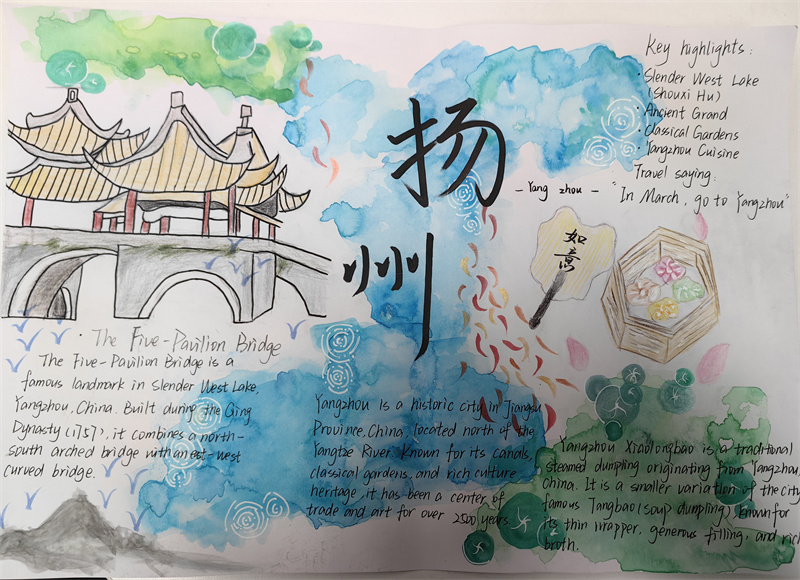 扬州
- Yang zhou -
Key highlights:
· Slender West Lake
(Shouxi Hu)
· Ancient Grand
· Classical Gardens
· Yangzhou Cuisine
Travel saying:
"In March, go to Yangzhou"
如意
· The Five-Pavilion Bridge
The Five-Pavilion Bridge is a
famous landmark in Slender West Lake,
Yangzhou, China. Built during the Qing
Dynasty (1757), it combines a north-
south arched bridge with an east-west
curved bridge.
Yangzhou is a historic city in Jiangsu
Province, China, located north of the
Yangtze River. Known for its canals,
classical gardens, and rich culture
heritage, it has been a center of
trade and art for over 2500 years.
Yangzhou Xiaolongbao is a traditional
steamed dumpling originating from Yangzhou,
China. It is a smaller variation of the city
famous Tangbao (soup dumpling), known for
its thin wrapper, generous filling, and rich
broth.